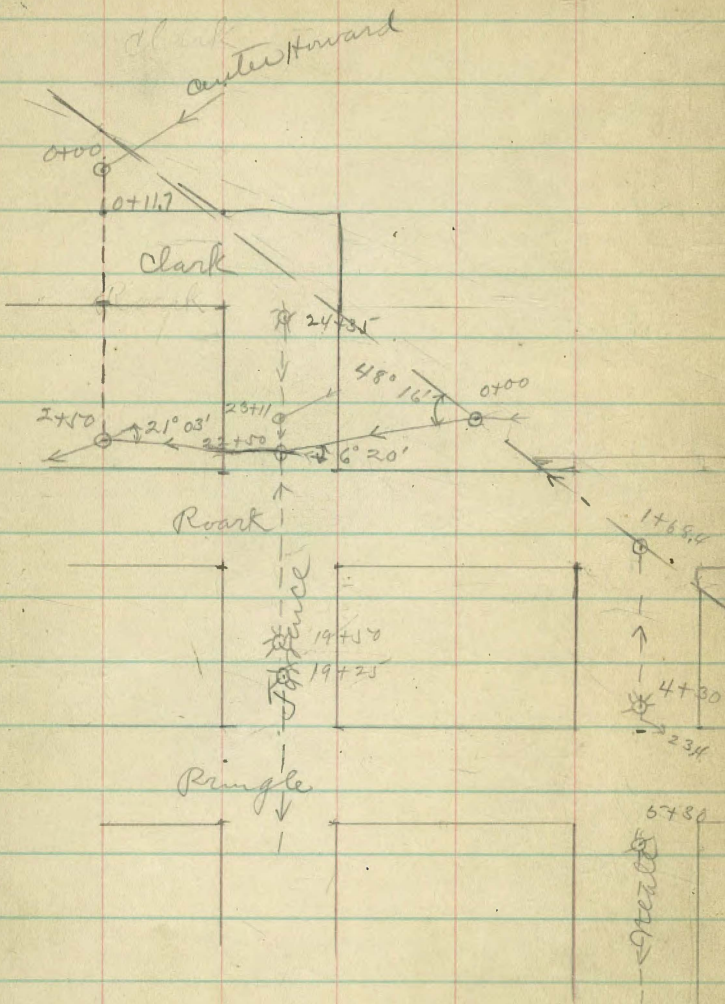 Clark
center Howard
0+00
0+11.7
Clark
24+35
48° 16'
0+00
23+11
2+50
21° 03'
22+50
6° 20'
Roark
1+68.4
19+50
19+25
4+30
23.4
Pringle
5+80